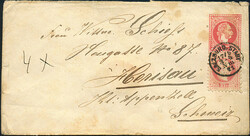 Frau Wittwe Schiess
Neugasse No 87.
4 x
Herisau
Kt. Appenzell
Schweiz